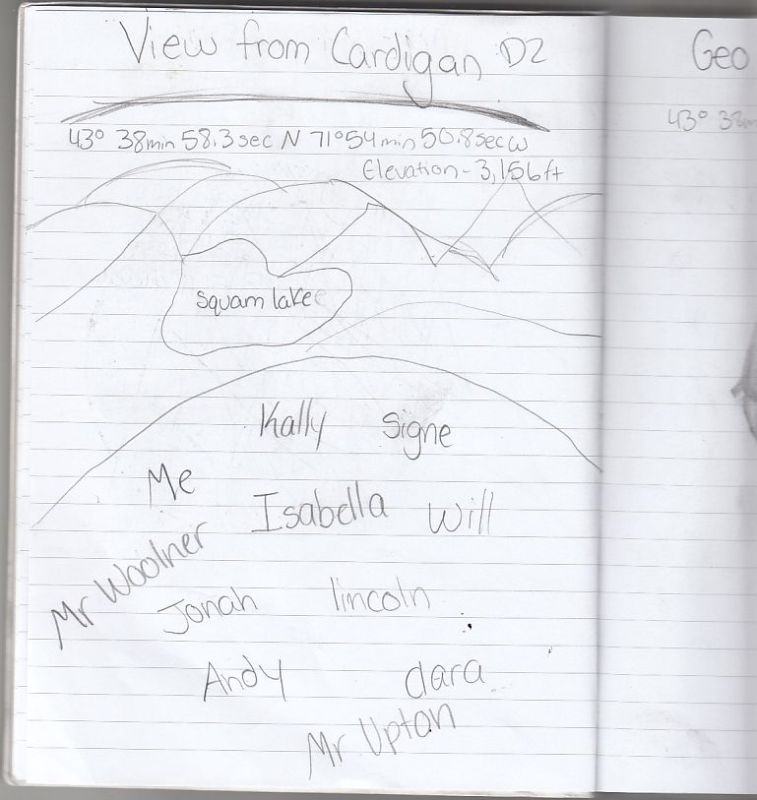 View from Cardigan D2
43° 38min 58.3 sec N 71°54min 50.8sec W
Elevation - 3,156ft
squam lake
Kally Signe
Me
Isabella Will
Mr Woolner
Jonah lincoln
Andy clara
Mr Upton
Geo
43° 38m